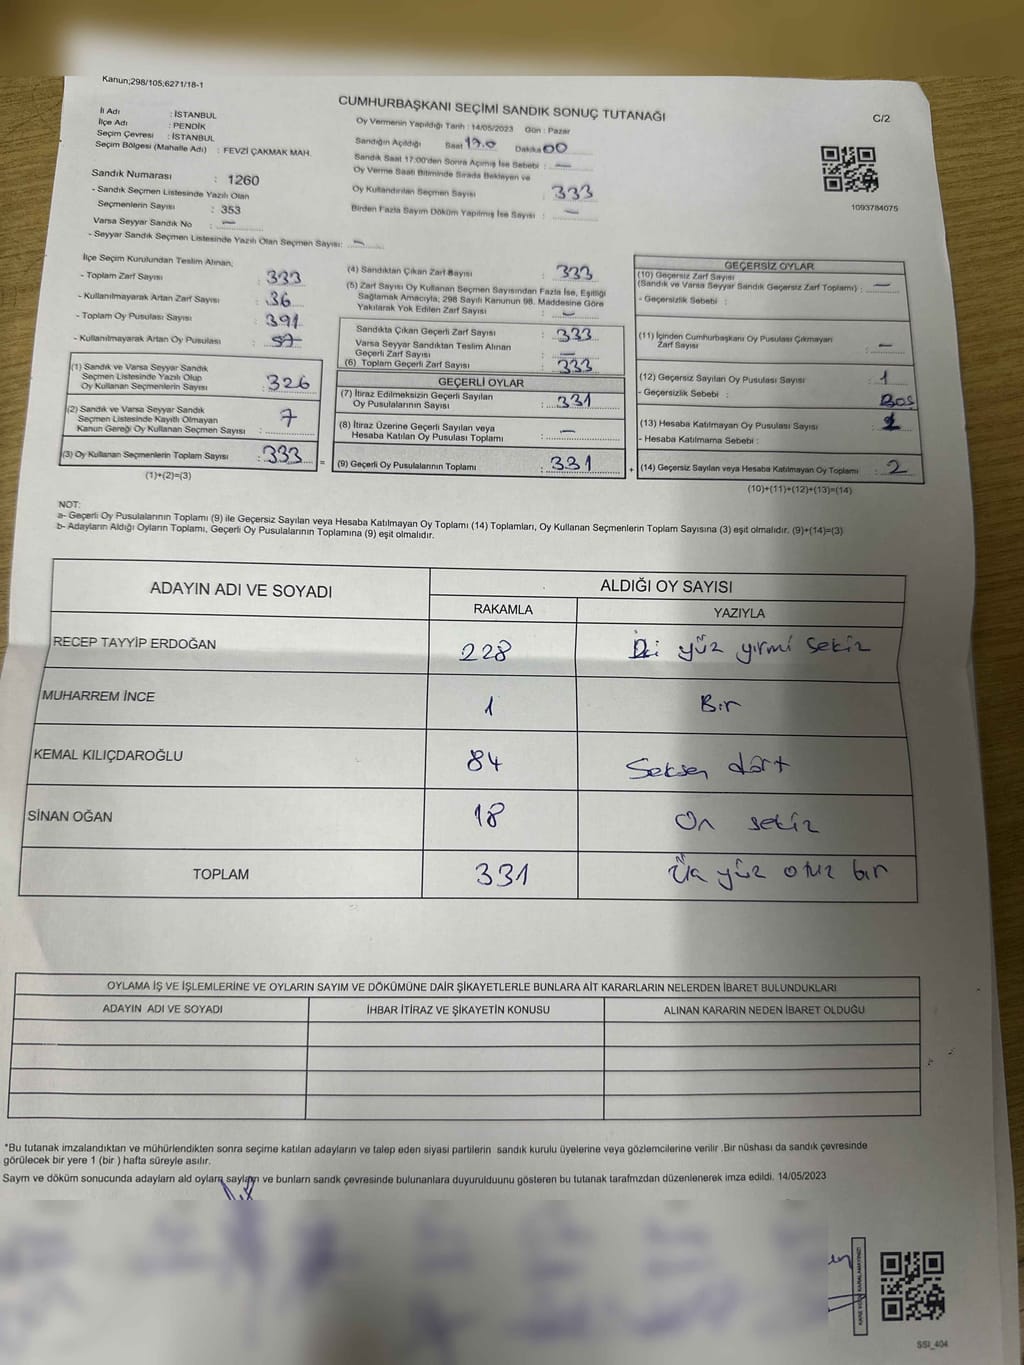 Kanun;298/105;6271/18-1
CUMHURBAŞKANI SEÇİMİ SANDIK SONUÇ TUTANAĞI
C/2
İl Adı : İSTANBUL
İlçe Adı : PENDİK
Seçim Çevresi : İSTANBUL
Seçim Bölgesi (Mahalle Adı) : FEVZİ ÇAKMAK MAH.
Sandık Numarası : 1260
- Sandık Seçmen Listesinde Yazılı Olan
Seçmenlerin Sayısı : 353
Varsa Seyyar Sandık No : —
- Seyyar Sandık Seçmen Listesinde Yazılı Olan Seçmen Sayısı: —
Oy Vermenin Yapıldığı Tarih : 14/05/2023 Gün : Pazar
Sandığın Açıldığı Saat Dakika 00
Sandık Saat 17:00'den Sonra Açımış İse Sebebi : —
Oy Verme Saati Bitiminde Sırada Bekleyen ve
Oy Kullandırılan Seçmen Sayısı : 333
Birden Fazla Sayım Döküm Yapılmış İse Sayısı : —
1093784075
İlçe Seçim Kurulundan Teslim Alınan;
- Toplam Zarf Sayısı : 333
- Kullanılmayarak Artan Zarf Sayısı : 36
- Toplam Oy Pusulası Sayısı : 391
- Kullanılmayarak Artan Oy Pusulası : 57
(1) Sandık ve Varsa Seyyar Sandık
Seçmen Listesinde Yazılı Olup
Oy Kullanan Seçmenlerin Sayısı : 326
(2) Sandık ve Varsa Seyyar Sandık
Seçmen Listesinde Kayıtlı Olmayan
Kanun Gereği Oy Kullanan Seçmen Sayısı : 7
(3) Oy Kullanan Seçmenlerin Toplam Sayısı : 333 =
(1)+(2)=(3)
(4) Sandıktan Çıkan Zarf Sayısı : 333
(5) Zarf Sayısı Oy Kullanan Seçmen Sayısından Fazla İse, Eşitliği
Sağlamak Amacıyla; 298 Sayılı Kanunun 98. Maddesine Göre
Yakılarak Yok Edilen Zarf Sayısı : —
Sandıkta Çıkan Geçerli Zarf Sayısı : 333
Varsa Seyyar Sandıktan Teslim Alınan
Geçerli Zarf Sayısı : —
(6) Toplam Geçerli Zarf Sayısı : 333
GEÇERLİ OYLAR
(7) İtiraz Edilmeksizin Geçerli Sayılan
Oy Pusulalarının Sayısı : 331
(8) İtiraz Üzerine Geçerli Sayılan veya
Hesaba Katılan Oy Pusulası Toplamı : —
(9) Geçerli Oy Pusulalarının Toplamı : 331 +
GEÇERSİZ OYLAR
(10) Geçersiz Zarf Sayısı
(Sandık ve Varsa Seyyar Sandık Geçersiz Zarf Toplamı) : —
- Geçersizlik Sebebi :
(11) İçinden Cumhurbaşkanı Oy Pusulası Çıkmayan
Zarf Sayısı : —
(12) Geçersiz Sayılan Oy Pusulası Sayısı : 1
- Geçersizlik Sebebi : Boş
(13) Hesaba Katılmayan Oy Pusulası Sayısı :
- Hesaba Katılmama Sebebi :
(14) Geçersiz Sayılan veya Hesaba Katılmayan Oy Toplamı : 2
(10)+(11)+(12)+(13)=(14)
NOT:
a- Geçerli Oy Pusulalarının Toplamı (9) ile Geçersiz Sayılan veya Hesaba Katılmayan Oy Toplamı (14) Toplamları, Oy Kullanan Seçmenlerin Toplam Sayısına (3) eşit olmalıdır. (9)+(14)=(3)
b- Adayların Aldığı Oyların Toplamı, Geçerli Oy Pusulalarının Toplamına (9) eşit olmalıdır.
ADAYIN ADI VE SOYADI ALDIĞI OY SAYISI
RAKAMLA YAZIYLA
RECEP TAYYİP ERDOĞAN 228 İki yüz yirmi sekiz
MUHARREM İNCE 1 Bir
KEMAL KILIÇDAROĞLU 84 Seksen dört
SİNAN OĞAN 18 On sekiz
TOPLAM 331 Üç yüz otuz bir
OYLAMA İŞ VE İŞLEMLERİNE VE OYLARIN SAYIM VE DÖKÜMÜNE DAİR ŞİKAYETLERLE BUNLARA AİT KARARLARIN NELERDEN İBARET BULUNDUKLARI
ADAYIN ADI VE SOYADI İHBAR İTİRAZ VE ŞİKAYETİN KONUSU ALINAN KARARIN NEDEN İBARET OLDUĞU
*Bu tutanak imzalandıktan ve mühürlendikten sonra seçime katılan adayların ve talep eden siyasi partilerin sandık kurulu üyelerine veya gözlemcilerine verilir .Bir nüshası da sandık çevresinde
görülecek bir yere 1 (bir ) hafta süreyle asılır.
Saym ve döküm sonucunda adaylarn ald oylarn saylarn ve bunlarn sandk çevresinde bulunanlara duyurulduunu gösteren bu tutanak tarafmzdan düzenlenerek imza edildi. 14/05/2023
SSI_404